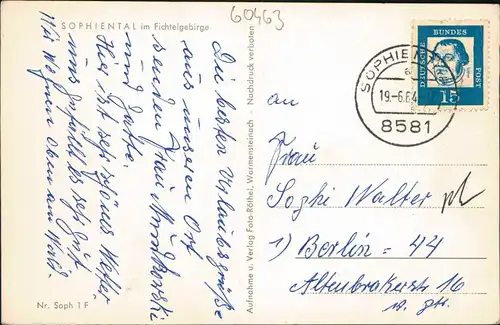 60463
SOPHIENTAL im Fichtelgebirge
Die besten Urlaubsgrüße
aus unseren Ort
senden Frau
und Gatte.
Hier ist sehr schönes Wetter
uns gefällt es sehr gut
Wir wohnen oben am Wald.
Nr. Soph 1 F
Aufnahme u. Verlag Foto-Röthel, Warmensteinach - Nachdruck verboten
DEUTSCHE BUNDES POST
15
SOPHIENTAL
19.-6.64
8581
an
Frau
Sophi Walter
1) Berlin = 44
Altenbrakerstr 16